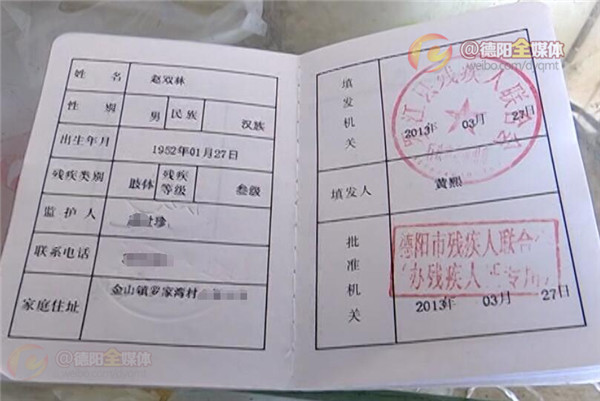 姓 名 赵双林
性 别 男 民族 汉族
出生年月 1952年01月27日
残疾类别 肢体 残疾等级 叁级
监护人 珍
联系电话
家庭住址 金山镇罗家湾村
@德阳全媒体
weibo.com/dyqmt
填发机关
江县残疾人联合会
2013年 03月 27日
填发人 黄熙
批准机关
德阳市残疾人联合
办残疾人 专用
2013年 03月 27日
@德阳全媒体